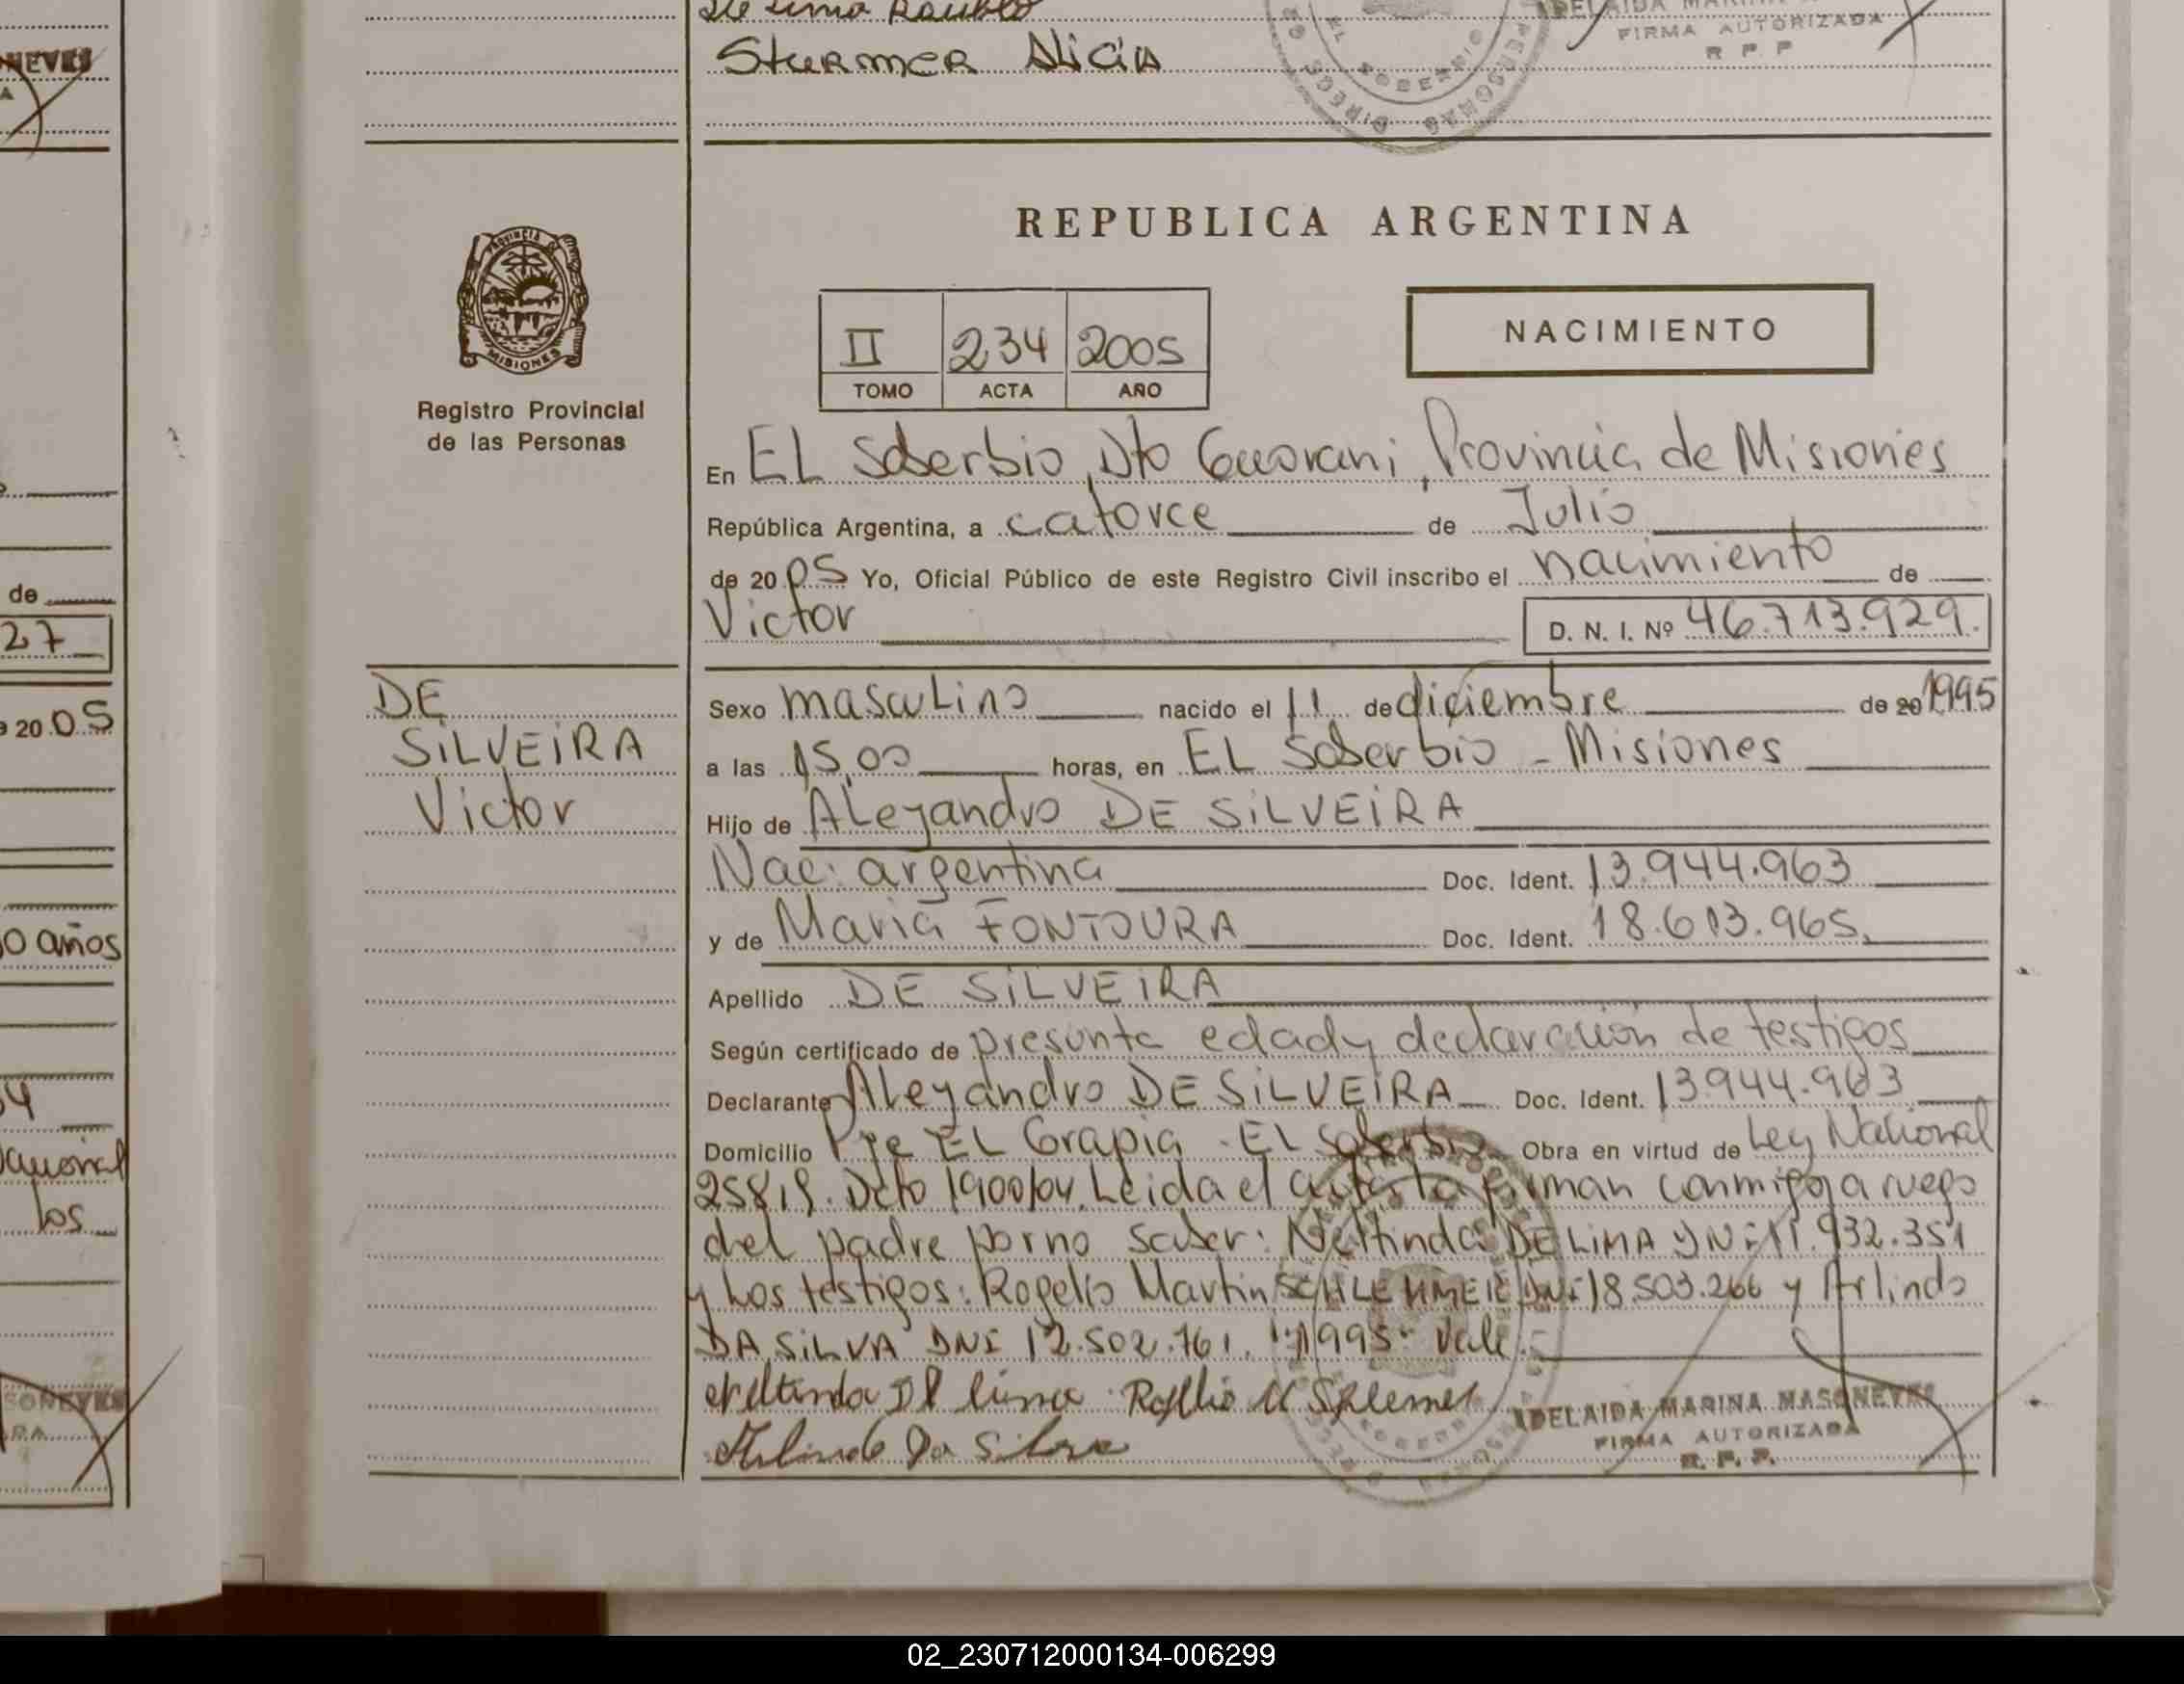 Sturmer Alicia
FIRMA AUTORIZADA
R. P. P.
REPUBLICA ARGENTINA
PROVINCIA
MISIONES
Registro Provincial
de las Personas
II 234 2005
TOMO ACTA AÑO
NACIMIENTO
En EL Soberbio, Dto Guarani, Provincia de Misiones
República Argentina, a catorce de Julio
de 2005 Yo, Oficial Público de este Registro Civil inscribo el nacimiento de
Victor D. N. I. Nº 46.713.929.
DE
SILVEIRA
Victor
Sexo masculino nacido el 11 de diciembre de 20 1995
a las 15,00 horas, en EL Soberbio - Misiones
Hijo de Aleyandro DE SILVEIRA
Nac: argentina Doc. Ident. 13.944.963
y de Maria FONTOURA Doc. Ident. 18.613.965.
Apellido DE SILVEIRA
Según certificado de presunta edad y declaración de testigos
Declarante Aleyandro DE SILVEIRA Doc. Ident. 13944.963
Domicilio Pje EL Grapia - EL Soberbio Obra en virtud de Ley Nacional
25819. Dcto 1900/04. Leida el acta la firman conmigo a ruego
del padre por no saber: Neltinda DE LIMA DNI 11.932.351
y Los testigos: Rogelio Martin SCHLEMMER DNI 18.503.266 y Arlindo
DA SILVA DNI 12.502.761. "1995" Vale.
Neltinda De lima Rogelio M Schlemer
Arlindo Da Silva
ADELAIDA MARINA MASONEVES
FIRMA AUTORIZADA
R. P. P.
NEVES
de
27
20 05
0 años
los
02_230712000134-006299